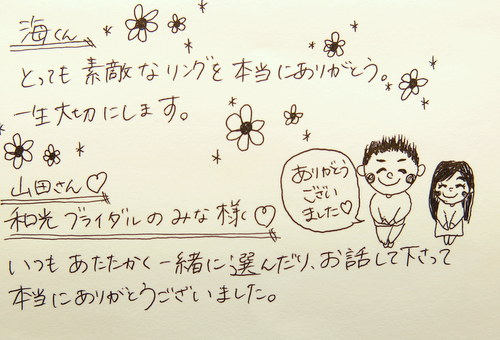 海くん
とっても素敵なリングを本当にありがとう。
一生大切にします。
山田さん♡
和光ブライダルのみな様く♡
ありがとう
ござい
ました♡
いつもあたたかく一緒に選んだり、お話して下さって
本当にありがとうございました。